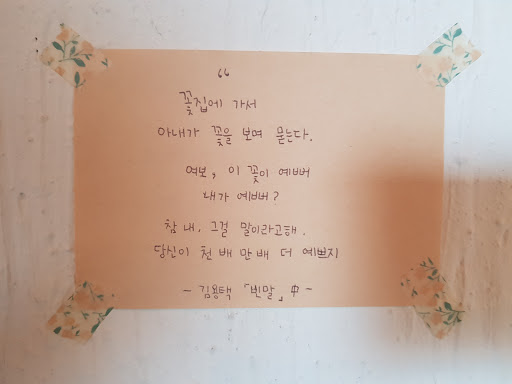 “
꽃집에 가서
아내가 꽃을 보며 묻는다.
여보, 이 꽃이 예뻐
내가 예뻐?
참 내. 그걸 말이라고해.
당신이 천 배 만 배 더 예쁘지
- 김용택 「빈말」 中 -